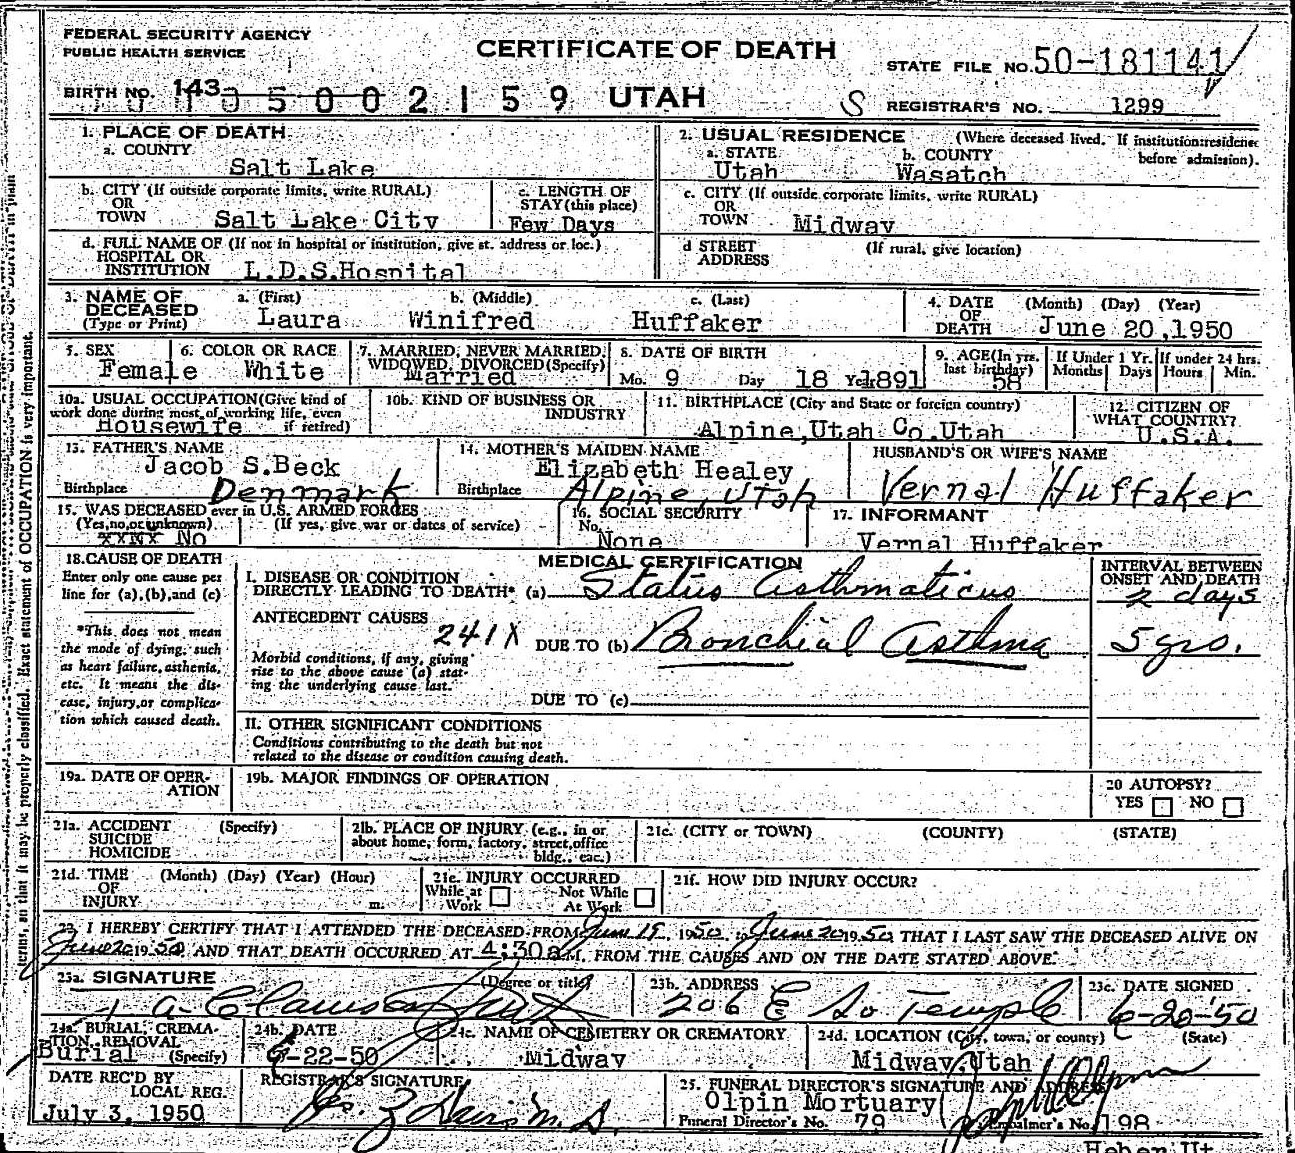 FEDERAL SECURITY AGENCY
PUBLIC HEALTH SERVICE
CERTIFICATE OF DEATH
STATE FILE NO. 50-181141
BIRTH NO. 143
05002159 UTAH
REGISTRAR'S NO. 1299
1. PLACE OF DEATH
a. COUNTY
Salt Lake
2. USUAL RESIDENCE (Where deceased lived. If institution:residence before admission).
a. STATE b. COUNTY
Utah Wasatch
b. CITY (If outside corporate limits, write RURAL)
OR
TOWN Salt Lake City
c. LENGTH OF
STAY (this place)
Few Days
c. CITY (If outside corporate limits, write RURAL)
OR
TOWN Midway
d. FULL NAME OF (If not in hospital or institution, give st. address or loc.)
HOSPITAL OR
INSTITUTION L.D.S.Hospital
d STREET (If rural, give location)
ADDRESS
3. NAME OF DECEASED (Type or Print)
a. (First) b. (Middle) c. (Last)
Laura Winifred Huffaker
4. DATE OF DEATH (Month) (Day) (Year)
June 20,1950
5. SEX
Female
6. COLOR OR RACE
White
7. MARRIED, NEVER MARRIED,
WIDOWED, DIVORCED (Specify)
Married
8. DATE OF BIRTH
Mo. 9 Day 18 Yr. 1891
9. AGE (In yrs.
last birthday)
58
If Under 1 Yr.
Months Days
If under 24 hrs.
Hours Min.
10a. USUAL OCCUPATION (Give kind of
work done during most of working life, even
if retired)
Housewife
10b. KIND OF BUSINESS OR
INDUSTRY
11. BIRTHPLACE (City and State or foreign country)
Alpine,Utah Co.Utah
12. CITIZEN OF
WHAT COUNTRY?
U.S.A.
13. FATHER'S NAME
Jacob S.Beck
Birthplace Denmark
14. MOTHER'S MAIDEN NAME
Elizabeth Healey
Birthplace Alpine, Utah
HUSBAND'S OR WIFE'S NAME
Vernal Huffaker
15. WAS DECEASED ever in U.S. ARMED FORCES
(Yes,no,or unknown) (If yes, give war or dates of service)
No
16. SOCIAL SECURITY
No.
None
17. INFORMANT
Vernal Huffaker
18. CAUSE OF DEATH
Enter only one cause per
line for (a),(b),and (c)
*This does not mean
the mode of dying, such
as heart failure, asthenia,
etc. It means the dis-
ease, injury, or complica-
tion which caused death.
MEDICAL CERTIFICATION
I. DISEASE OR CONDITION
DIRECTLY LEADING TO DEATH* (a) Status Asthmaticus
ANTECEDENT CAUSES
241X
DUE TO (b) Bronchial Asthma
Morbid conditions, if any, giving
rise to the above cause (a) stat-
ing the underlying cause last.
DUE TO (c)
INTERVAL BETWEEN
ONSET AND DEATH
2 days
5 yrs.
II. OTHER SIGNIFICANT CONDITIONS
Conditions contributing to the death but not
related to the disease or condition causing death.
19a. DATE OF OPER-
ATION
19b. MAJOR FINDINGS OF OPERATION
20 AUTOPSY?
YES NO
21a. ACCIDENT (Specify)
SUICIDE
HOMICIDE
21b. PLACE OF INJURY (e.g., in or
about home, form, factory, street, office
bldg., eac.)
21c. (CITY or TOWN) (COUNTY) (STATE)
21d. TIME (Month) (Day) (Year) (Hour)
OF
INJURY m.
21e. INJURY OCCURRED
While at Work Not While At Work
21f. HOW DID INJURY OCCUR?
22. I HEREBY CERTIFY THAT I ATTENDED THE DECEASED FROM June 19, 1950, to June 20 1950 THAT I LAST SAW THE DECEASED ALIVE ON
June 20 1950 AND THAT DEATH OCCURRED AT 4:30a M. FROM THE CAUSES AND ON THE DATE STATED ABOVE.
23a. SIGNATURE (Degree or title)
23b. ADDRESS
206 E So Temple
23c. DATE SIGNED
6-20-50
24a. BURIAL, CREMA-
TION, REMOVAL
(Specify)
Burial
24b. DATE
6-22-50
24c. NAME OF CEMETERY OR CREMATORY
Midway
24d. LOCATION (City, town, or county) (State)
Midway,Utah
DATE REC'D BY
LOCAL REG.
July 3, 1950
REGISTRAR'S SIGNATURE
25. FUNERAL DIRECTOR'S SIGNATURE AND ADDRESS
Olpin Mortuary
Funeral Director's No. 79
Embalmer's No. 198
Heber Ut
terms, so that it may be properly classified. Exact statement of OCCUPATION is very important.